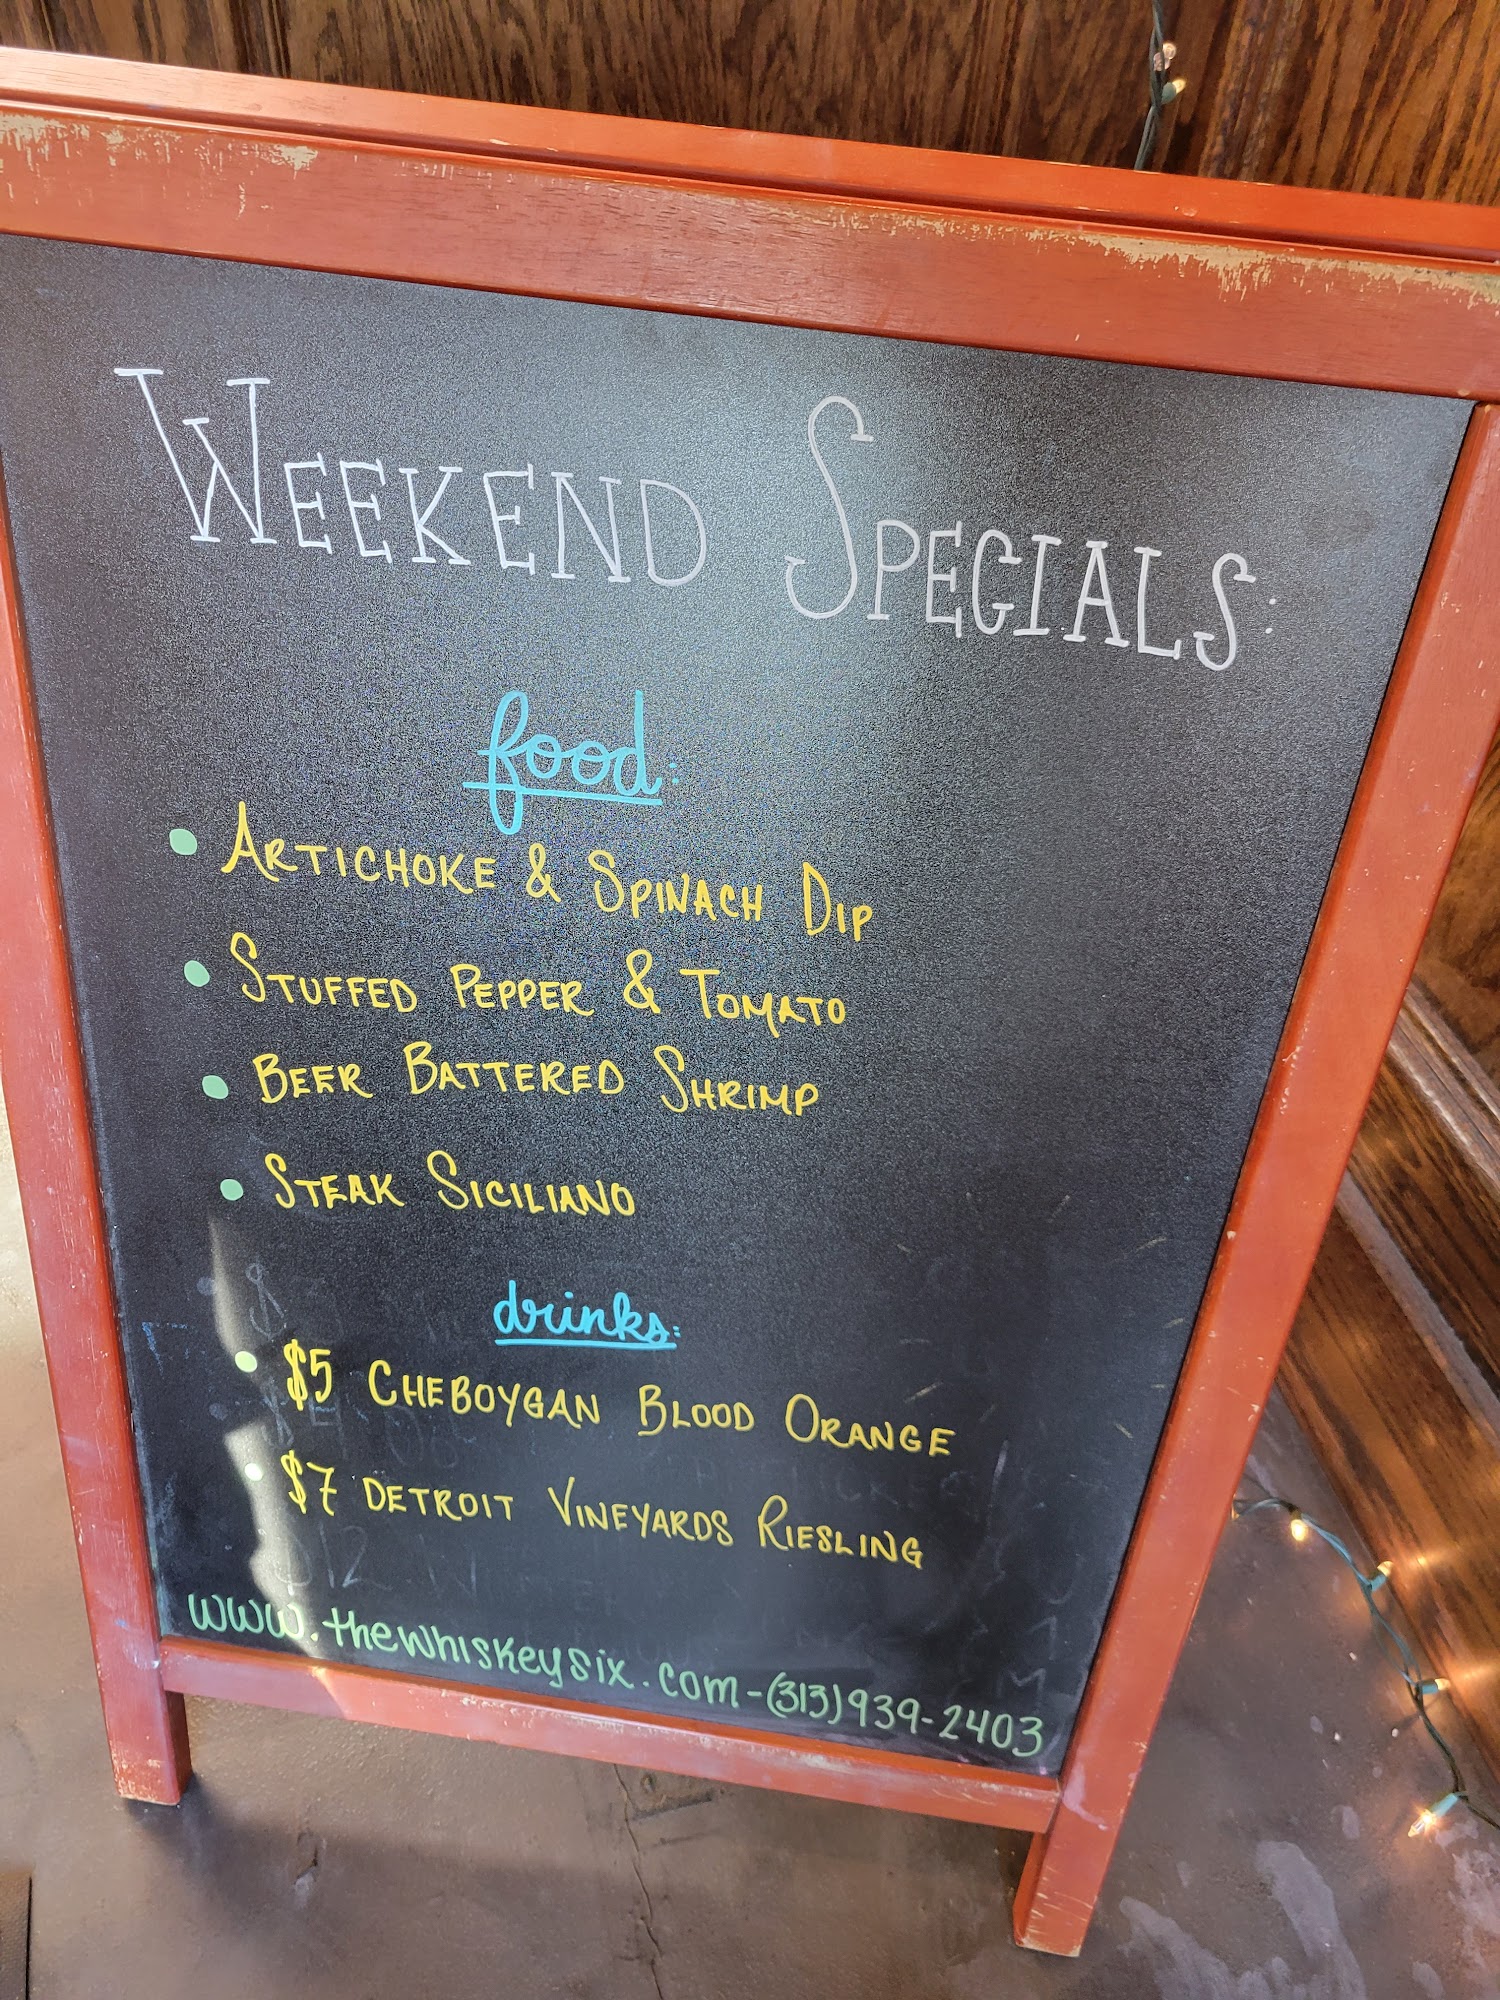 WEEKEND SPECIALS:
food:
• ARTICHOKE & SPINACH DIP
• STUFFED PEPPER & TOMATO
• BEER BATTERED SHRIMP
• STEAK SICILIANO
drinks:
• $5 CHEBOYGAN BLOOD ORANGE
• $7 DETROIT VINEYARDS RIESLING
www.thewhiskeysix.com-(313)939-2403